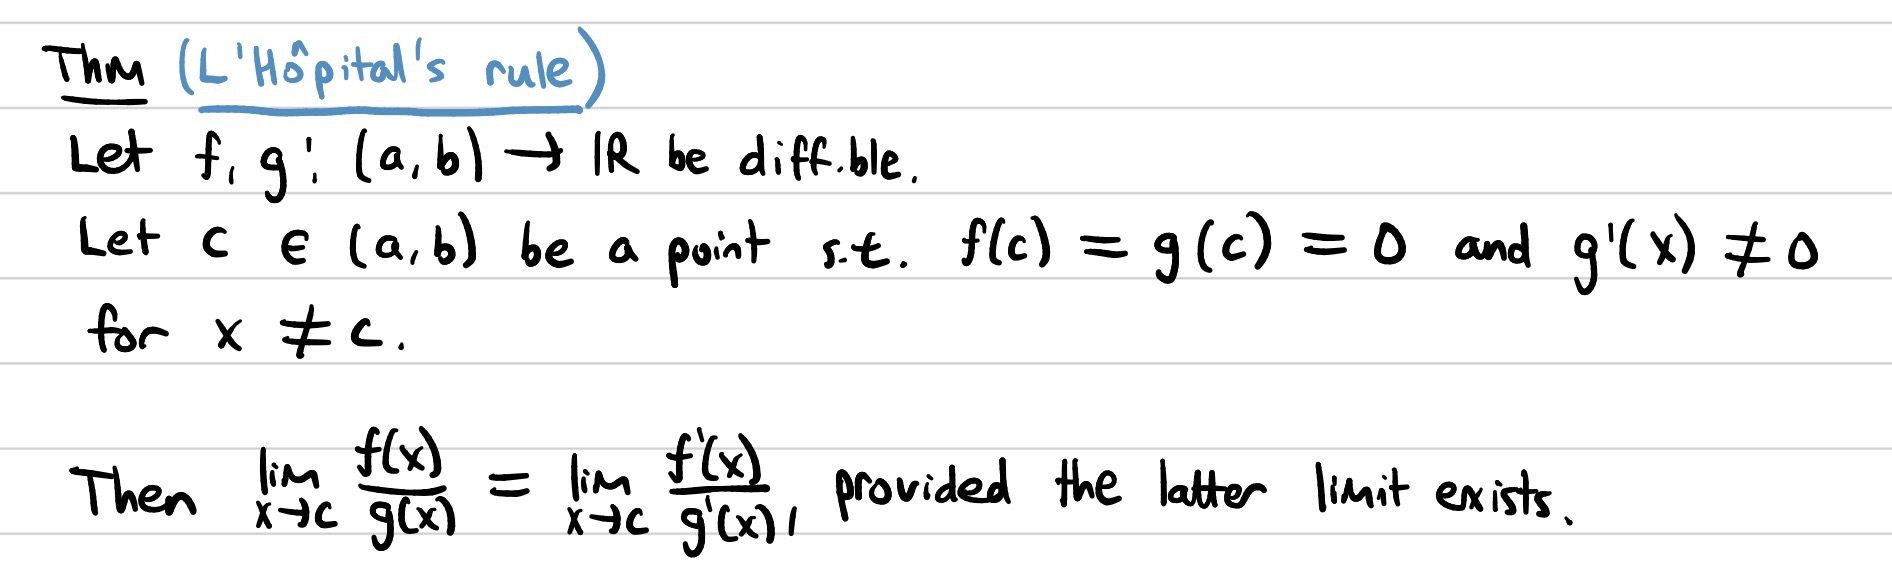 Thm (L'Hôpital's rule)
Let f, g : (a, b) → ℝ be diff.ble.
Let c ∈ (a, b) be a point s.t. f(c) = g(c) = 0 and g'(x) ≠ 0
for x ≠ c.
Then lim_{x→c} f(x)/g(x) = lim_{x→c} f'(x)/g'(x), provided the latter limit exists.